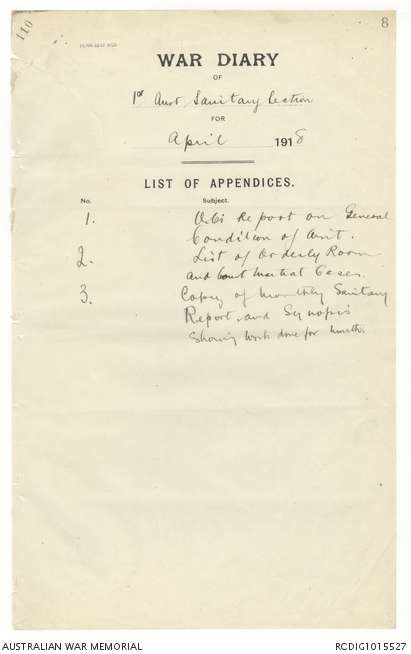 110
8
WAR DIARY
OF
1st Aust Sanitary Section
FOR
April 1918
LIST OF APPENDICES.
No. Subject.
1. O.C's Report on General
Condition of Unit.
2. List of Orderly Room
and Court Martial Cases.
3. Copy of Monthly Sanitary
Report and Synopsis
Showing Work done for Month.
AUSTRALIAN WAR MEMORIAL
RCDIG1015527